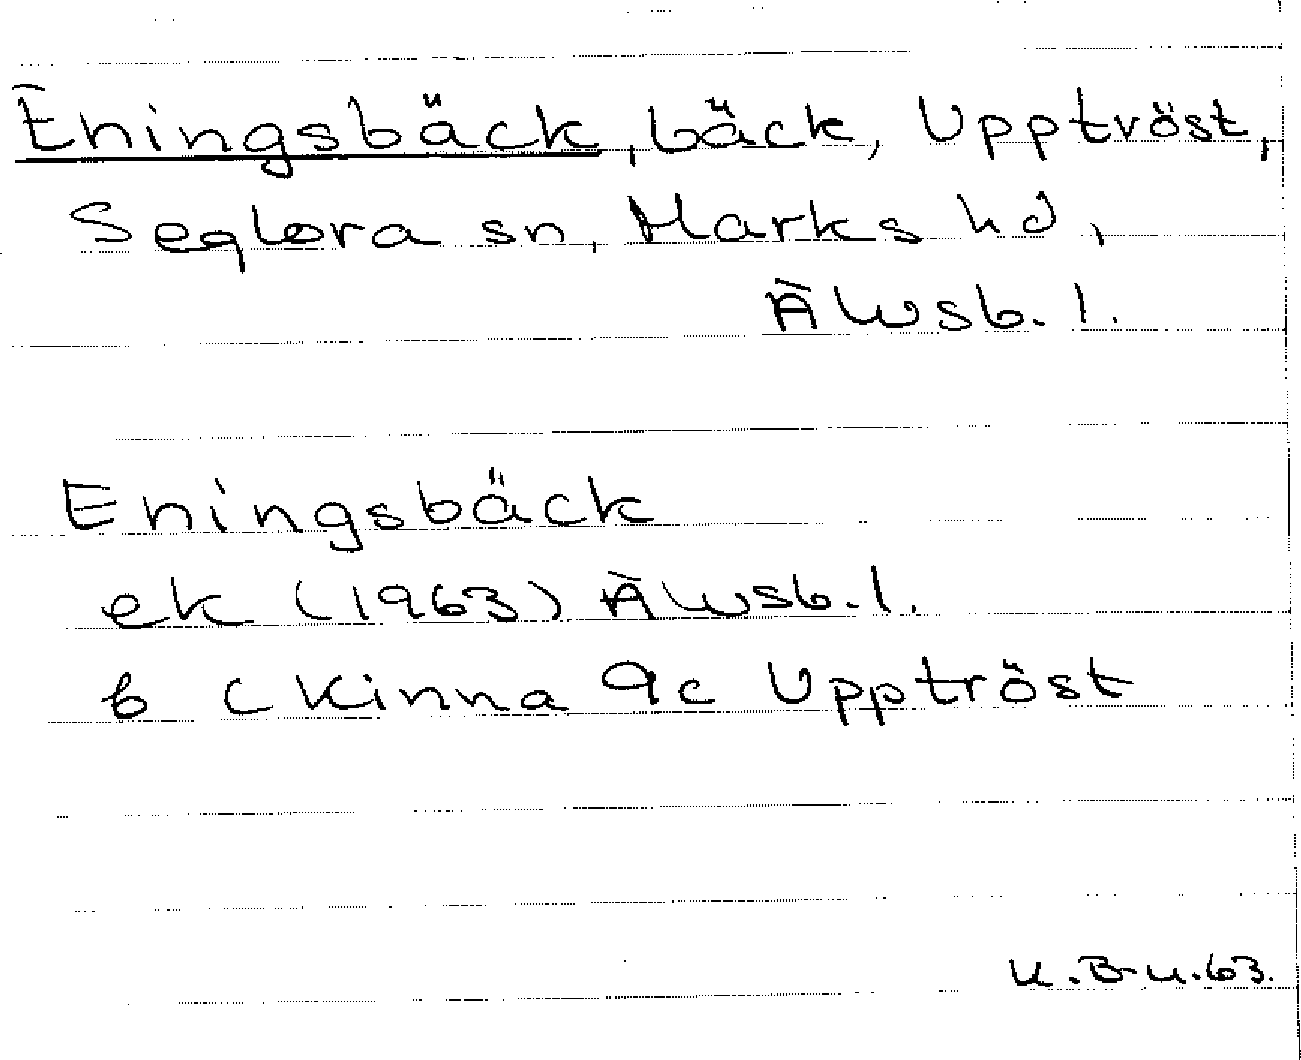 Eningsbäck, bäck, Upptröst,
Seglora sn, Marks hd,
Älvsb. l.
Eningsbäck
ek (1963) Älvsb. l.
b (Kinna 9c Upptröst
K.B-n.63.